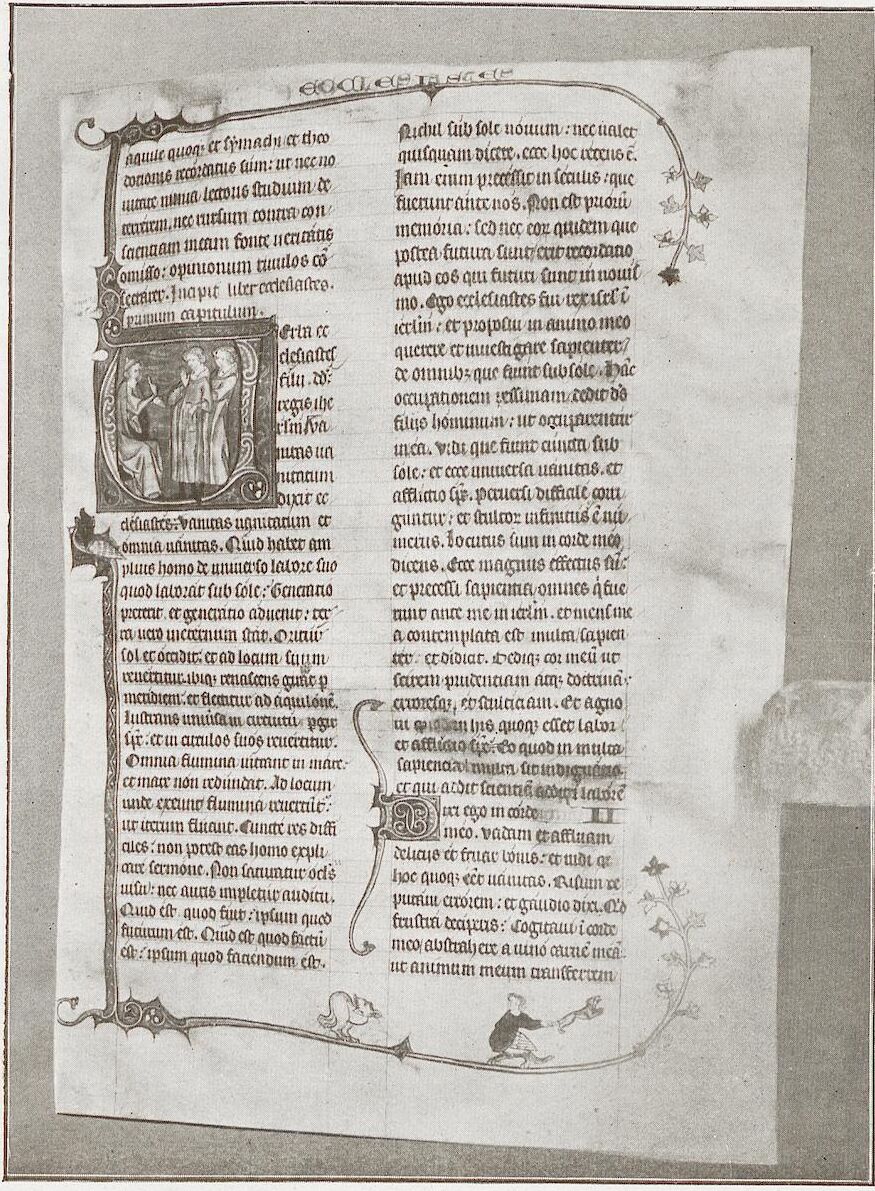 ECCLESIASTES
aquile quoq; et symachi et theo
dotionis recordatus sum: ut nec no
uitate nimia lectoris studium de
terrerem, nec rursum contra con
scientiam meam fonte ueritatis
omisso: opinionum riuulos cō
sectarer. Incipit liber ecclesiastes.
primum capitulum.
Verba ec
clesiastes
filii dd:
regis ihe
rlm. Va
nitas ua
nitatum
dixit ec
clesiastes: vanitas uanitatum et
omnia uanitas. Quid habet am
plius homo de uniuerso labore suo
quod laborat sub sole: Generatio
preterit et generatio aduenit: ter
ra uero ineternum stat. Oritur
sol et occidit: et ad locum suum
reuertitur. ibiq; renascens girat p
meridiem: et flectitur ad aquilonē.
lustrans uniūsa in circuitu pgit
sp̄c: et in circulos suos reuertitur.
Omnia flumina intrant in mare:
et mare non redundat. Ad locum
unde exeunt flumina reuertūt:
ut iterum fluant. Cuncte res diffi
ciles: non potest eas homo expli
care sermone. Non saturatur oclꝰ
uisu: nec auris impletur auditu.
Quid est quod fuit: ipsum quod
futurum est. Quid est quod factū
est: ipsum quod faciendum est.
Nichil sub sole nouum: nec ualet
quisquam dicere. ecce hoc recens ē.
Iam enim precessit in seculis: que
fuerunt ante nos. Non est priorū
memoria: sed nec eor quidem que
postea futura sunt, erit recordatio
apud eos qui futuri sunt in nouis
mo. Ego ecclesiastes fui rex isrl ī
ierlm: et proposui in animo meo
querere et inuestigare sapienter
de omnib; que fiunt sub sole. Hāc
occupationem pessimam, dedit dō
filijs hominum: ut occuparentur
in ea. Vidi que fiunt cuncta sub
sole: et ecce uniuersa uanitas. et
afflictio sp̄c. Peruersi difficile corri
guntur: et stultor infinitus ē nū
merus. Locutus sum in corde meo
dicens. Ecce magnus effectus sū:
et precessi sapientia, omnes q̄ fue
runt ante me in ierlm. et mens me
a contemplata est multa sapien
ter: et didicit. Dediq; cor meū ut
scirem prudentiam atq; doctrinā:
erroresq; et stulticiam. Et agno
ui quod in his quoq; esset labor
et afflictio sp̄c. Eo quod in multa
sapiencia multa sit indignatio
et qui addit scientiā addit ⁊ laborē
Dixi ego in corde II
meo. vadam et affluam
delicijs et fruar bonis: et uidi qꝫ
hoc quoq; eēt uanitas. Risum re
putaui errorem: et gaudio dixi. Qd
frustra deciperis: Cogitaui ī corde
meo, abstrahere a uino carnē meā.
ut animum meum transferrem